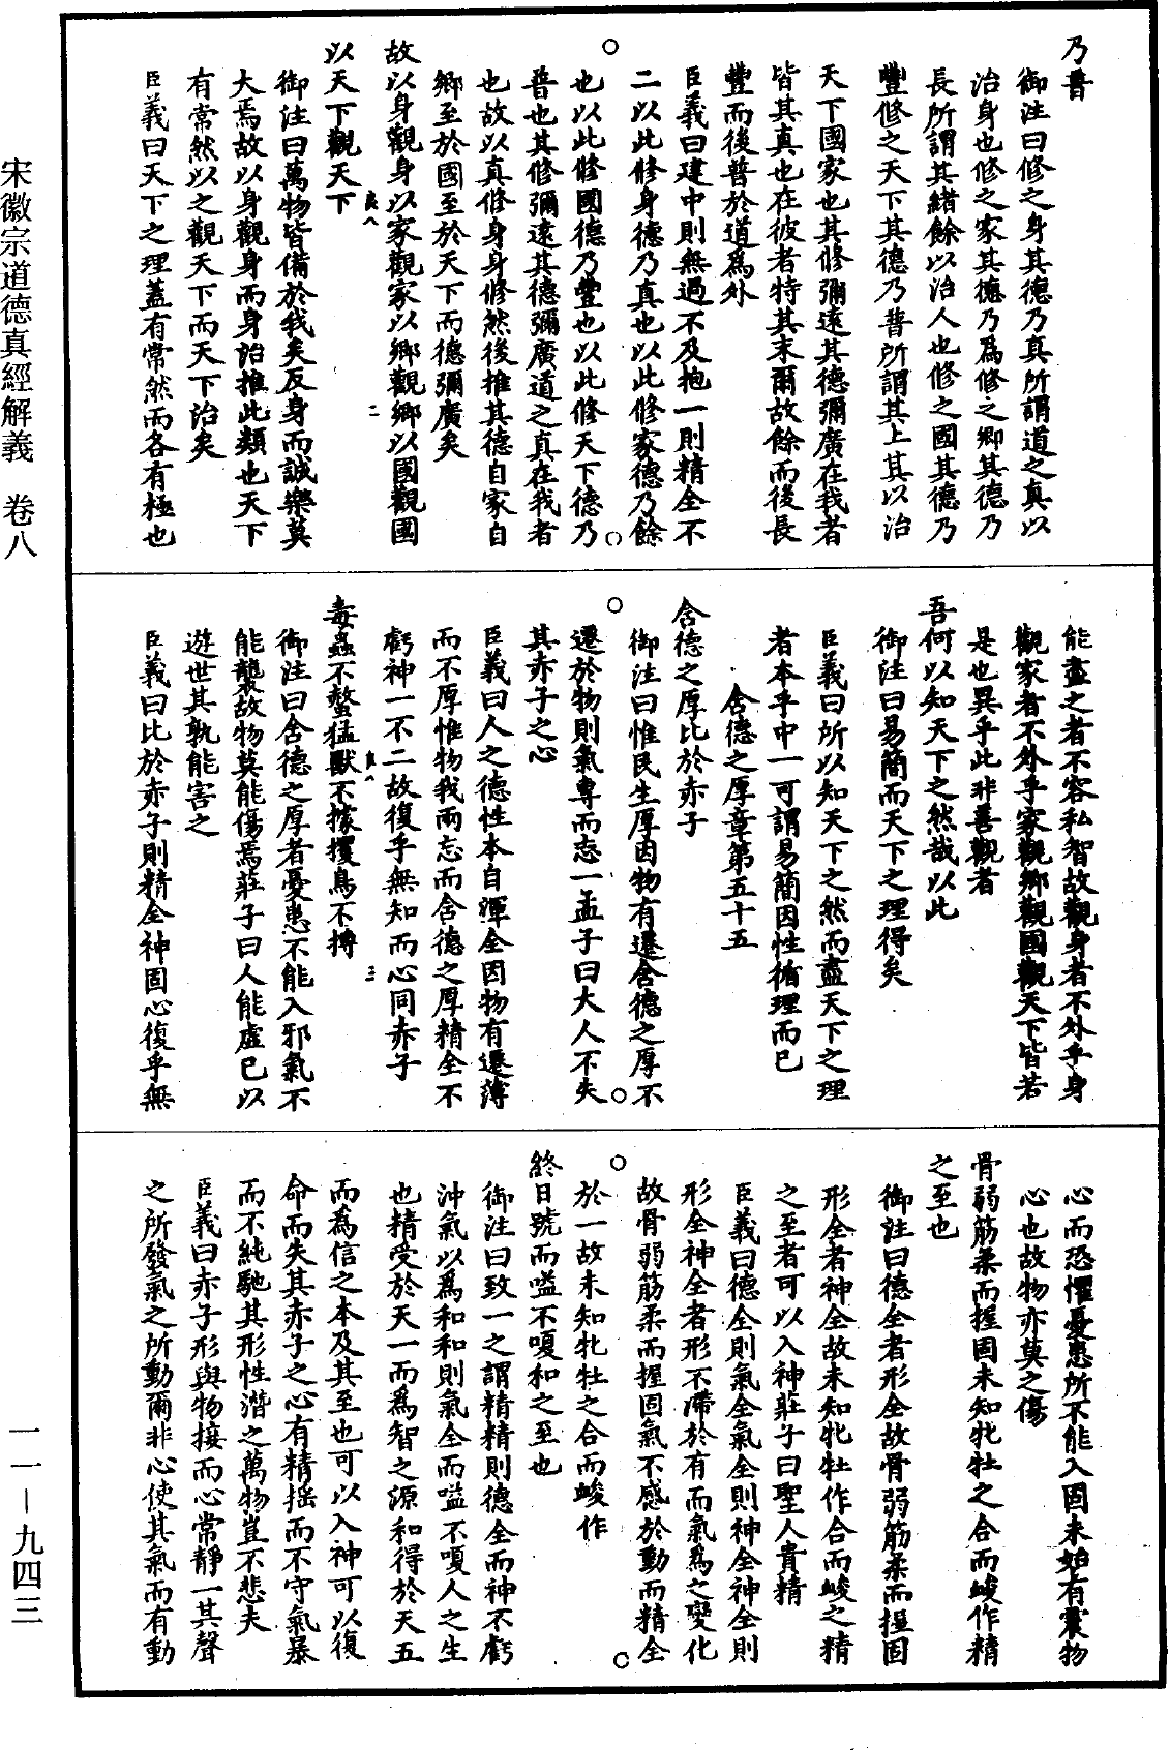 乃普
御注曰修之身其德乃真所謂道之真以
治身也修之家其德乃爲修之鄉其德乃
長所謂其緒餘以治人也修之國其德乃
豐修之天下其德乃普所謂其上其以治
天下國家也其修彌遠其德彌廣在我者
皆其真也在彼者特其末爾故餘而後長
豐而後普於道爲外
臣義曰建中則無過不及抱一則精全不
二以此修身德乃真也以此修家德乃餘
也以此修國德乃豐也以此修天下德乃
普也其修彌遠其德彌廣道之真在我者
也故以真修身身修然後推其德自家自
鄉至於國至於天下而德彌廣矣
故以身觀身以家觀家以鄉觀鄉以國觀國
良八 二
以天下觀天下
御注曰萬物皆備於我矣反身而誠樂莫
大焉故以身觀身而身治推此類也天下
有常然以之觀天下而天下治矣
臣義曰天下之理蓋有常然而各有極也
能盡之者不容私智故觀身者不外乎身
觀家者不外乎家觀鄉觀國觀天下皆若
是也異乎此非善觀者
吾何以知天下之然哉以此
御注曰易簡而天下之理得矣
臣義曰所以知天下之然而盡天下之理
者本乎中一可謂易簡因性循理而已
含德之厚章第五十五
含德之厚比於赤子
御注曰惟民生厚因物有遷含德之厚不
遷於物則氣專而志一孟子曰大人不失
其赤子之心
臣義曰人之德性本自渾全因物有遷薄
而不厚惟物我兩忘而含德之厚精全不
虧神一不二故復乎無知而心同赤子
良八 三
毒蟲不螫猛獸不據攫鳥不搏
御注曰含德之厚者憂患不能入邪氣不
能襲故物莫能傷焉莊子曰人能虛已以
遊世其孰能害之
臣義曰比於赤子則精全神固心復乎無
心而恐懼憂患所不能入固未始有震物
心也故物亦莫之傷
骨弱筋柔而握固未知牝牡之合而峻作精
之至也
御注曰德全者形全故骨弱筋柔而握固
形全者神全故未知牝牡作合而峻之精
之至者可以入神莊子曰聖人貴精
臣義曰德全則氣全氣全則神全神全則
形全神全者形不滯於有而氣爲之變化
故骨弱筋柔而握固氣不感於動而精全
於一故未知牝牡之合而峻作
終日號而嗌不嗄和之至也
御注曰致一之謂精精則德全而神不虧
沖氣以爲和和則氣全而嗌不嗄人之生
也精受於天一而爲智之源和得於天五
而爲信之本及其至也可以入神可以復
命而失其赤子之心有精搖而不守氣暴
而不純馳其形性潛之萬物豈不悲夫
臣義曰赤子形與物接而心常靜一其聲
之所發氣之所動爾非心使其氣而有動
宋徽宗道德真經解義　卷八
一一—九四三